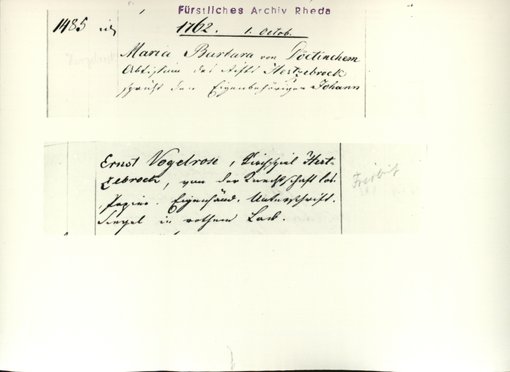 Fürstliches Archiv Rheda
1485 1762. 1. Octob.
Maria Barbara von Doetinchem
Abtissin des Stifts Hertzebrock
spricht den Eigenbehörigen Johann
Ernst Vogelrose, Kirchspiel Hert-
zebrock, von der Knechtschaft los.
Papier. Eigenhänd. Unterschrift.
Siegel in rothem Lack.
Freibrief